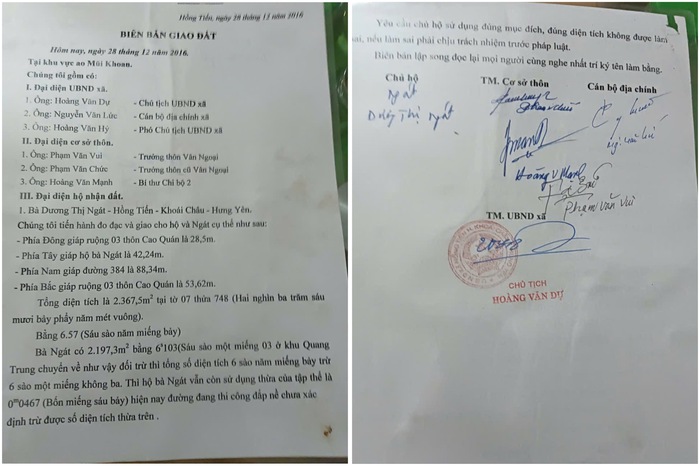 Hồng Tiến, ngày 28 tháng 12 năm 2016
BIÊN BẢN GIAO ĐẤT
Hôm nay, ngày 28 tháng 12 năm 2016.
Tại khu vực ao Mũi Khoan.
Chúng tôi gồm có:
I. Đại diện UBND xã.
1. Ông: Hoàng Văn Dự - Chủ tịch UBND xã
2. Ông: Nguyễn Văn Lức - Cán bộ địa chính xã
3. Ông: Hoàng Văn Hý - Phó Chủ tịch UBND xã
II. Đại diện cơ sở thôn.
1. Ông: Phạm Văn Vui - Trưởng thôn Vân Ngoại
2. Ông: Phạm Văn Chức - Trưởng thôn cũ Vân Ngoại
3. Ông: Hoàng Văn Mạnh - Bí thư Chi bộ 2
III. Đại diện hộ nhận đất.
1. Bà Dương Thị Ngát - Hồng Tiến - Khoái Châu - Hưng Yên.
Chúng tôi tiến hành đo đạc và giao cho hộ và Ngát cụ thể như sau:
- Phía Đông giáp ruộng 03 thôn Cao Quán là 28,5m.
- Phía Tây giáp hộ bà Ngát là 42,24m.
- Phía Nam giáp đường 384 là 88,34m.
- Phía Bắc giáp ruộng 03 thôn Cao Quán là 53,62m.
Tổng diện tích là 2.367,5m² tại tờ 07 thửa 748 (Hai nghìn ba trăm sáu
mươi bảy phẩy năm mét vuông).
Bằng 6.57 (Sáu sào năm miếng bảy)
Bà Ngát có 2.197,3m² bằng 6ˢ103(Sáu sào một miếng 03 ở khu Quang
Trung chuyển về như vậy đối trừ thì tổng số diện tích 6 sào năm miếng bảy trừ
6 sào một miếng không ba. Thì hộ bà Ngát vẫn còn sử dụng thừa của tập thể là
0ᵐ0467 (Bốn miếng sáu bảy) hiện nay đường đang thi công đắp nề chưa xác
định trừ được số diện tích thừa trên .
Yêu cầu chủ hộ sử dụng đúng mục đích, đúng diện tích không được làm
sai, nếu làm sai phải chịu trách nhiệm trước pháp luật.
Biên bản lập song đọc lại mọi người cùng nghe nhất trí ký tên làm bằng.
Chủ hộ TM. Cơ sở thôn Cán bộ địa chính
Ngát
Dương Thị Ngát
Hoàng V Mạnh
Phạm Văn Vui
TM. UBND xã
CHỦ TỊCH
HOÀNG VĂN DỰ